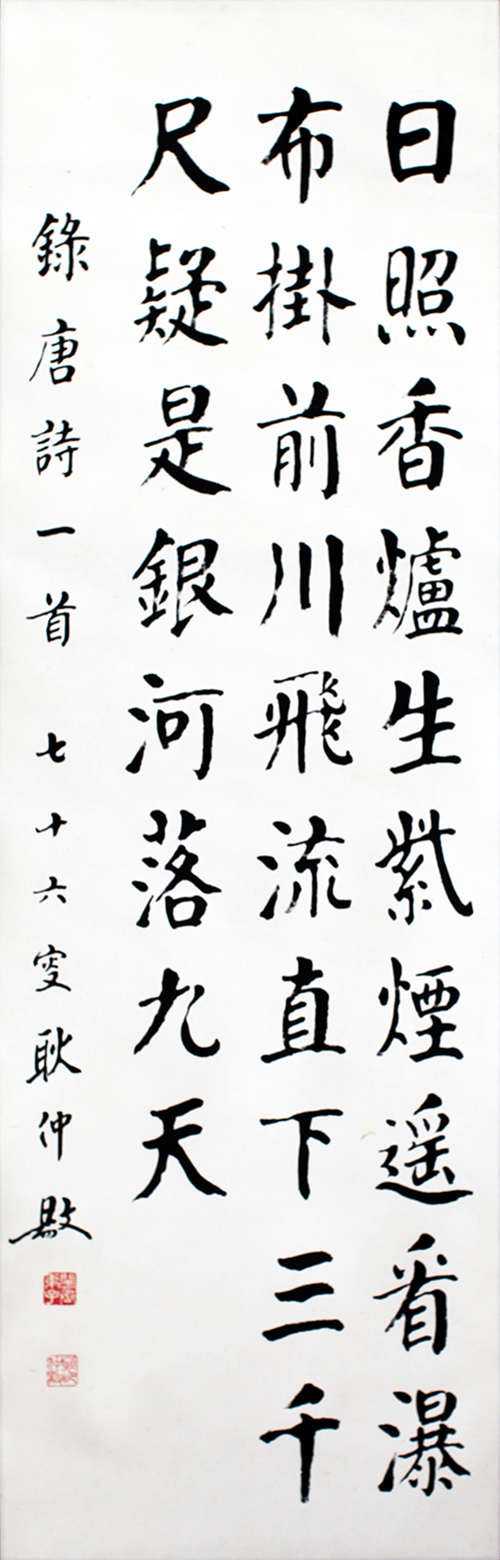 日照香爐生紫煙遥看瀑
布掛前川飛流直下三千
尺疑是銀河落九天
錄唐詩一首 七十六叟耿仲敭